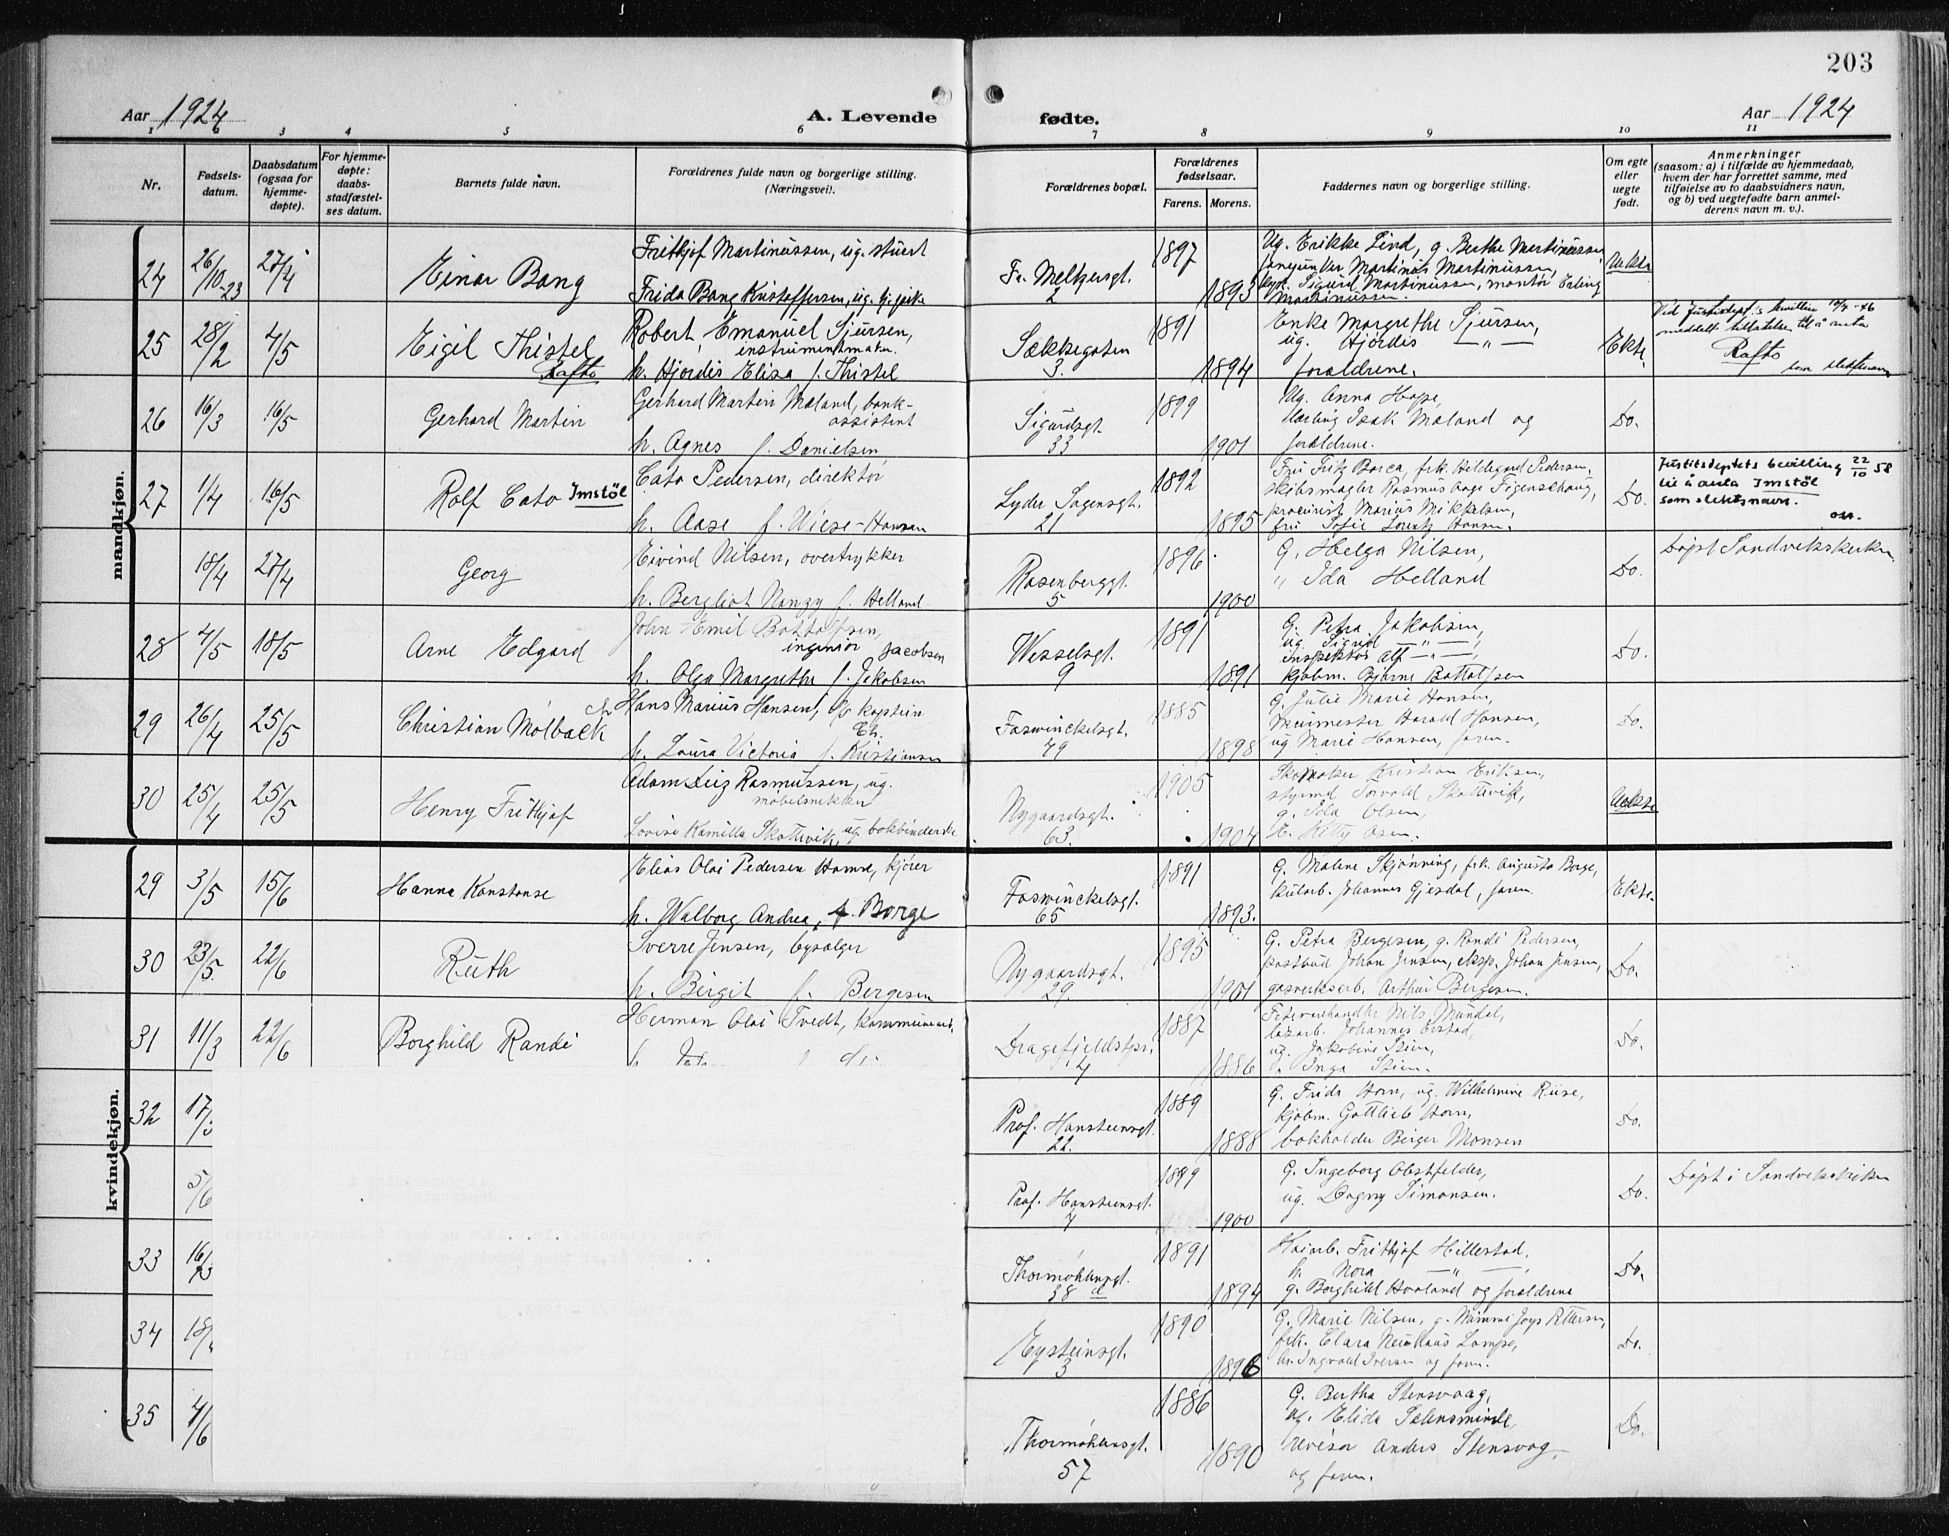 203
Aar 1924
A. Levende
fødte.
Aar 1924
1 2 3 4 5 6 7 8 9 10 11
Nr.
Fødsels-
datum.
Daabsdatum
(ogsaa for
hjemme-
døpte).
For hjemme-
døpte:
daabs-
stadfæstel-
ses datum.
Barnets fulde navn.
Forældrenes fulde navn og borgerlige stilling.
(Næringsvei).
Forældrenes bopæl.
Forældrenes
fødselsaar.
Farens. Morens.
Faddernes navn og borgerlige stilling.
Om egte
eller
uegte
født.
Anmerkninger
(saasom: a) i tilfælde av hjemmedaab,
hvem der har forrettet samme, med
tilføielse av to daabsvidners navn,
og b) ved uegtefødte barn anmel-
derens navn m. v.).
mandkjøn.
24 26/10-23 27/4 Einar Bang
Frithjof Martinussen, ug. stuert
Frida Bang Kristoffersen, ug.
Fr. Meltzersgt.
2
1897
1893
Ug. Erikke Lind, g. Berthe Martinussen,
Martinus Martinussen,
Sigurd Martinussen, montør Erling
Martinussen.
Uekte
25 28/2 4/5 Eigil Thistel
Rafto
Robert Emanuel Sjursen,
instrumentmaker.
h. Hjordis Eliza f. Thistel
Sækkegaten
3.
1891
1894
Enke Margrethe Sjursen,
ug. Hjördis — " —
forældrene.
Ekte.
Rafto
26 16/3 16/5 Gerhard Martin
Gerhard Martin Mæland, bank-
assistent
h. Agnes f. Danielsen
Sigurdsgt.
33
1899
1901
Ug. Anna Hope,
Isak Mæland og
forældrene.
Do.
27 1/4 16/5 Rolf Cato Imstöl
Cato Pedersen, direktør
h. Aase f. Wiese-Hansen
Lyder Sagensgt.
21
1892
1895
Fru Fritz Borca, frk. Hildegard Pedersen,
skibsmægler Rasmus Aage Figenschoug,
prokurist Marius Mikkelsen,
fru Sofie Lorentz Hansen.
Do.
Justitsdeptets bevilling 22/10 58
til å anta Imstöl
som slektsnavn.
18/4 27/4 Georg
Eivind Nilsen, overtrykker
h. Bergliot Nanzy f. Helland
Rosenberggt.
5
1896
1900
G. Helga Nilsen,
" Ida Helland
Do.
Døpt Sandvikskirken
28 4/5 18/5 Arne Edgard
John Emil Bottolfsen,
ingeniør Jacobsen
h. Olga Margrethe f. Jakobsen
Wesselsgt.
9
1891
1891
G. Petra Jakobsen,
ug. Sigrid — " —,
inspektør Alf — " —,
kjøbm. Bjarne Bottolfsen
Do.
29 26/4 25/5 Christian Molback
Hans Marius Hansen, kaptein
Ch.
h. Laura Victoria f. Kristjansen
Foswinckelsgt.
49
1885
1898
G. Julie Marie Hansen,
murmester Harald Hansen,
ug. Marie Hansen, faren.
Do.
30 25/4 25/5 Henry Frithjof
Adam Leiz Rasmussen, ug.
møbelsnekker
Lovise Kamilla Skottevik, ug. bokbinderske
Nygaardsgt.
63.
1905
1904
Skomaker Kristian Eriksen,
styrmd Torvald Skottevik,
g. Ida Olsen,
Uekte
kvindekjøn.
29 3/5 15/6 Hanna Konstanse
Elias Olai Pedersen Hamre, kjører
h. Walborg Andrea, f. Borge
Foswinckelsgt.
65
1891
1893.
G. Malene Skjønning, frk. Augusta Borge,
kularb. Johannes Gjesdal, faren.
Ekte.
30 23/5. 22/6 Ruth
Sverre Jensen, bysælger
h. Birgit f. Bergesen
Nygaardsgt.
29.
1895
1901
G. Petra Bergesen, g. Randi Pedersen,
postbud Johan Jensen, eksp. Johan Jensen,
gasverksarb. Arthur Bergesen.
Do.
31 11/3 22/6 Borghild Randi
Herman Olai Tvedt, kommunearb.
Dragefjeldstpr.
4
1887
1886
Nils Mundal,
Johannes
ug. Jakobine Stien,
" Inga Stien.
Do.
32 17/
Prof. Hansteensgt.
22.
1889
1888
G. Frida Horn, ug. Wilhelmine Riise,
kjøbm. Gottlieb Horn,
bokholder Birger Monsen
Do.
5/6
Prof. Hansteensgt.
7
1899
1900
G. Ingeborg Obstfelder,
ug. Dagny Simonsen.
Do.
Døpt i Sandvikskirken
33 16/
Thormøhlensgt.
38 d
1891
1894
Frithjof Hillestad,
h. Nora — " —,
g. Borghild Hovland og forældrene
Do.
34 18/
Eysteinsgt.
3
1890
1896
G. Marie Nilsen, g. Mimmi Joys Pettersen,
frk. Clara Neuhaus Lampe,
hr. Ingvald Iversen og faren.
Do.
35 4/6
Thormøhlensgt.
57
1886
1890
G. Bertha Stensvaag,
ug. Elida Sælensminde,
revisor Anders Stensvag,
og faren.
Do.